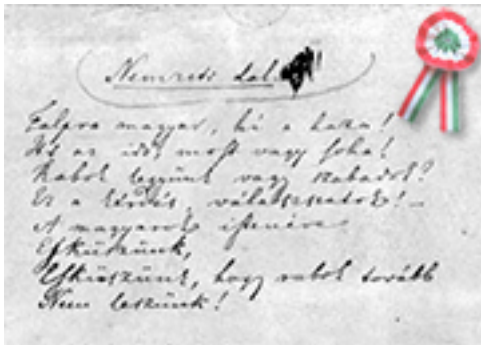 Nemzeti dal!
Talpra magyar, hí a haza!
Itt az idő, most vagy soha!
Rabok legyünk vagy szabadok?
Ez a kérdés, válasszatok! –
A magyarok istenére
Esküszünk,
Esküszünk, hogy rabok tovább
Nem leszünk!